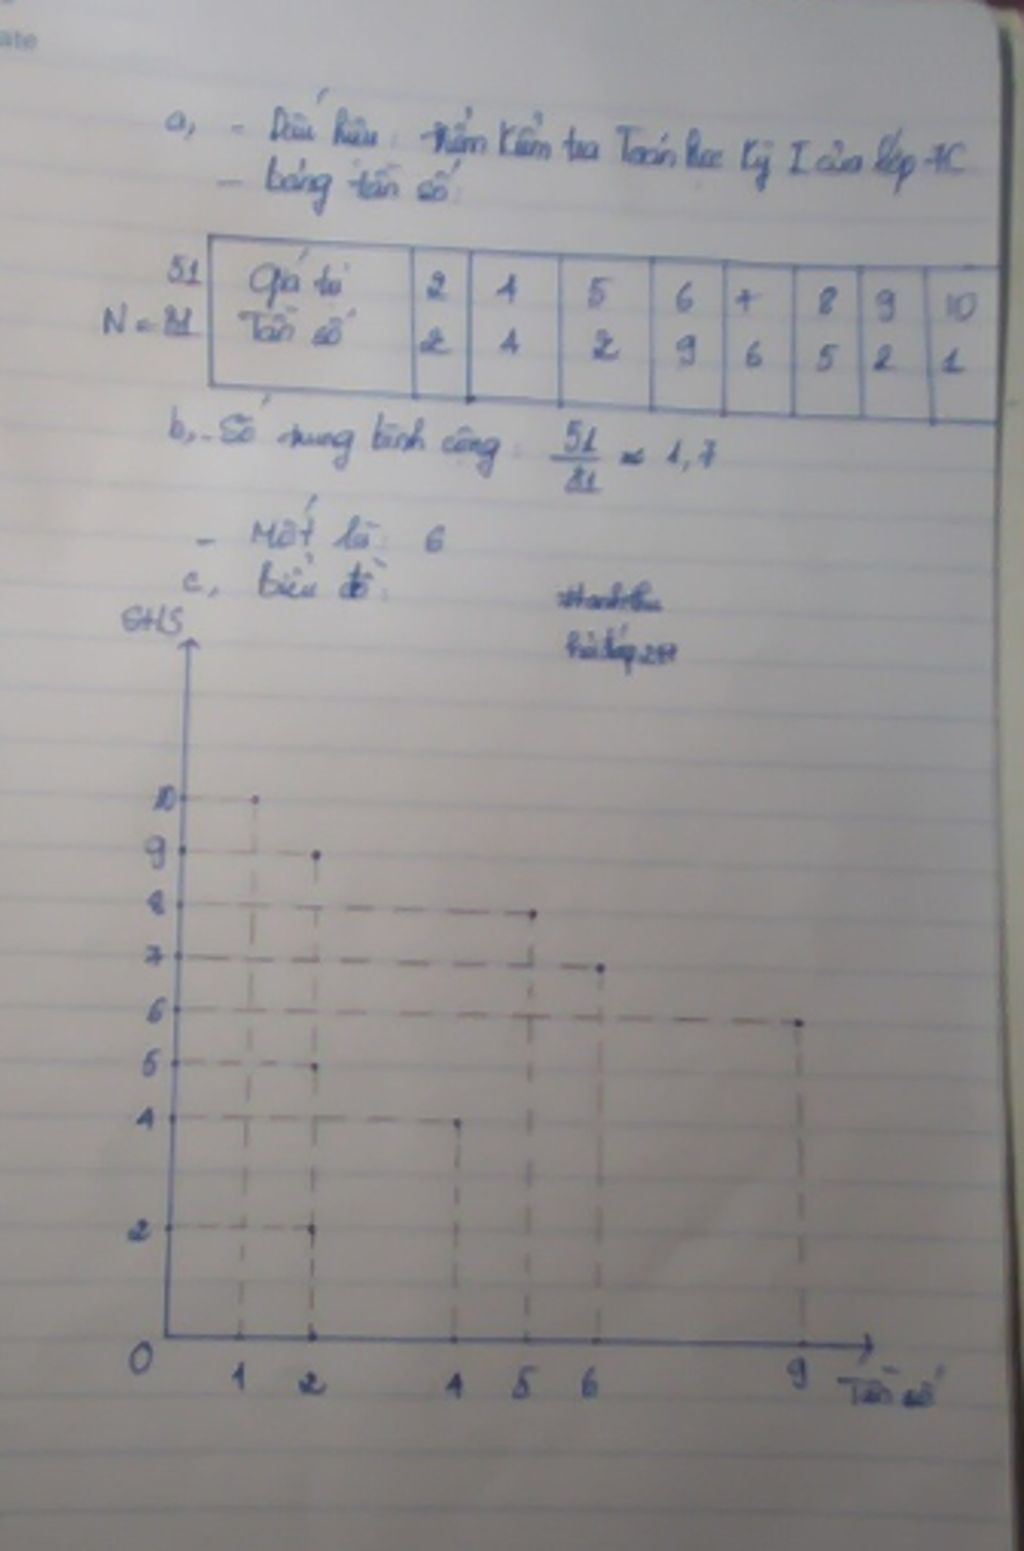 ate
a, - Dấu hiệu: điểm kiểm tra Toán học kỳ I của lớp 7C
- bảng tần số:
51 Giá trị 2 4 5 6 7 8 9 10
N = 31 Tần số 2 4 2 9 6 5 2 1
b, - Số trung bình cộng: 51
31 ≈ 1,7
- Mốt là: 6
c, biểu đồ:
GHS
10
9
8
7
6
5
4
2
0 1 2 4 5 6 9 Tần số